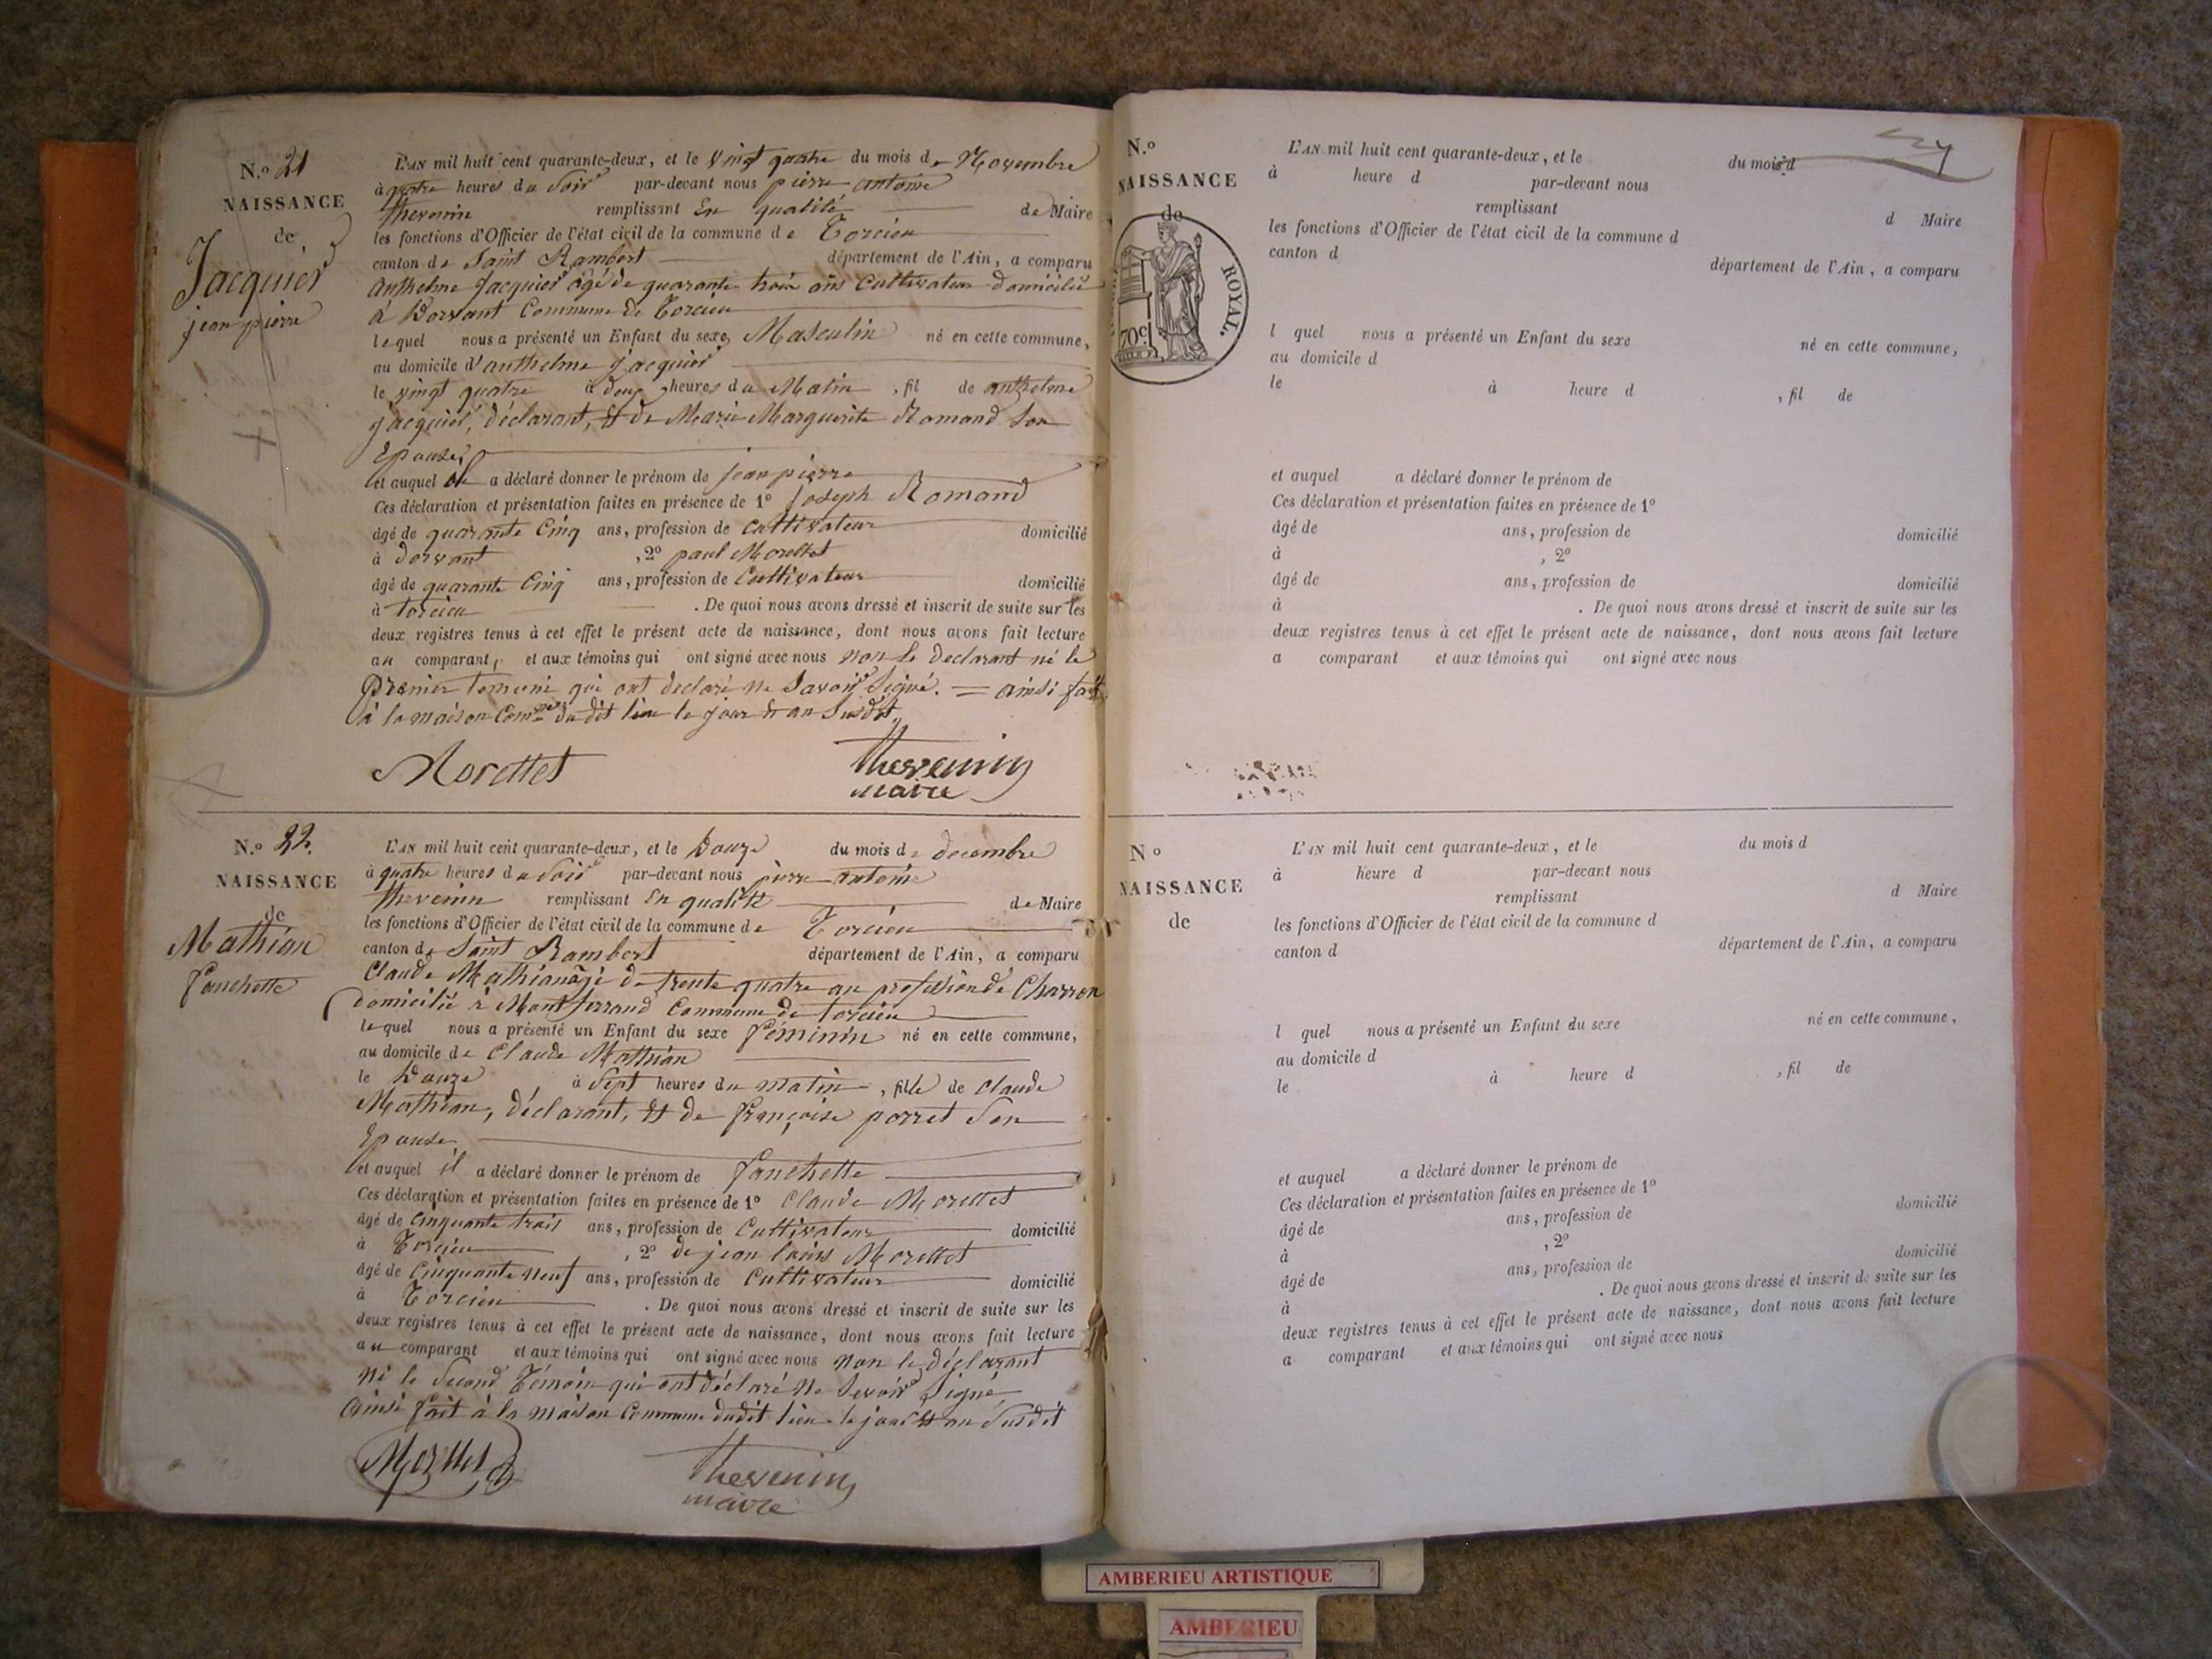 N.º 21
NAISSANCE
de
Jacquier
jean pierre
L'AN mil huit cent quarante-deux, et le vingt quatre du mois de Novembre
à quatre heures du Soir par-devant nous pierre antoine
thevenin remplissant En qualité de Maire
les fonctions d'Officier de l'état civil de la commune de Torcieu
canton de Saint Rambert département de l'Ain, a comparu
anthelme Jacquier âgé de quarante trois ans Cultivateur domicilié
à Dorvant Commune de Torcieu
lequel nous a présenté un Enfant du sexe Masculin né en cette commune,
au domicile d'anthelme jacquier
le vingt quatre à deux heures du Matin , fil de anthelme
jacquier, déclarant, & de Marie Marguerite Romand Son
Epouse
et auquel il a déclaré donner le prénom de jean pierre
Ces déclaration et présentation faites en présence de 1º joseph Romand
âgé de quarante Cinq ans, profession de cultivateur domicilié
à dorvant , 2º paul Morettet
âgé de quarante Cinq ans, profession de Cultivateur domicilié
à torcieu . De quoi nous avons dressé et inscrit de suite sur les
deux registres tenus à cet effet le présent acte de naissance, dont nous avons fait lecture
au comparant, et aux témoins qui ont signé avec nous non le declarant ni le
premier temoin qui ont declaré ne Savoir Signé. = ainsi fait
à la maison Comne dudit lieu le jour & an Susdit
Morettet
thevenin
maire
N.º 22
NAISSANCE
de
Mathian
Fanchette
L'AN mil huit cent quarante-deux, et le Douze du mois de decembre
à quatre heures du Soir par-devant nous pierre antoine
thevenin remplissant En qualité de Maire
les fonctions d'Officier de l'état civil de la commune de Torcieu
canton de Saint Rambert département de l'Ain, a comparu
Claude Mathian âgé de trente quatre an profession de Charron
domicilié à Montferrand Commune de torcieu
lequel nous a présenté un Enfant du sexe Féminin né en cette commune,
au domicile de Claude Mathian
le Douze à Sept heures du matin , fille de claude
Mathian, déclarant, & de françoise porret Son
Epouse
et auquel il a déclaré donner le prénom de Fanchette
Ces déclaration et présentation faites en présence de 1º Claude Morettet
âgé de cinquante trois ans, profession de Cultivateur domicilié
à Torcieu , 2º de jean louis Morettet
âgé de Cinquante neuf ans, profession de Cultivateur domicilié
à Torcieu . De quoi nous avons dressé et inscrit de suite sur les
deux registres tenus à cet effet le présent acte de naissance, dont nous avons fait lecture
au comparant et aux témoins qui ont signé avec nous non le déclarant
ni le Second Témoin qui ont déclaré ne Savoir Signé
ainsi fait à la maison Commune dudit lieu le jour & an Susdit
Morettet
thevenin
maire
N.º
NAISSANCE
de
ROYAL.
70 c.
L'AN mil huit cent quarante-deux, et le du mois d
à heure d par-devant nous
remplissant d Maire
les fonctions d'Officier de l'état civil de la commune d
canton d département de l'Ain, a comparu
l quel nous a présenté un Enfant du sexe né en cette commune,
au domicile d
le à heure d , fil de
et auquel a déclaré donner le prénom de
Ces déclaration et présentation faites en présence de 1º
âgé de ans, profession de domicilié
à , 2º
âgé de ans, profession de domicilié
à . De quoi nous avons dressé et inscrit de suite sur les
deux registres tenus à cet effet le présent acte de naissance, dont nous avons fait lecture
a comparant et aux témoins qui ont signé avec nous
Nº
NAISSANCE
de
L'AN mil huit cent quarante-deux, et le du mois d
à heure d par-devant nous
remplissant d Maire
les fonctions d'Officier de l'état civil de la commune d
canton d département de l'Ain, a comparu
l quel nous a présenté un Enfant du sexe né en cette commune,
au domicile d
le à heure d , fil de
et auquel a déclaré donner le prénom de
Ces déclaration et présentation faites en présence de 1º
âgé de ans, profession de domicilié
à , 2º
âgé de ans, profession de domicilié
à . De quoi nous avons dressé et inscrit de suite sur les
deux registres tenus à cet effet le présent acte de naissance, dont nous avons fait lecture
a comparant et aux témoins qui ont signé avec nous
AMBERIEU ARTISTIQUE
AMBERIEU